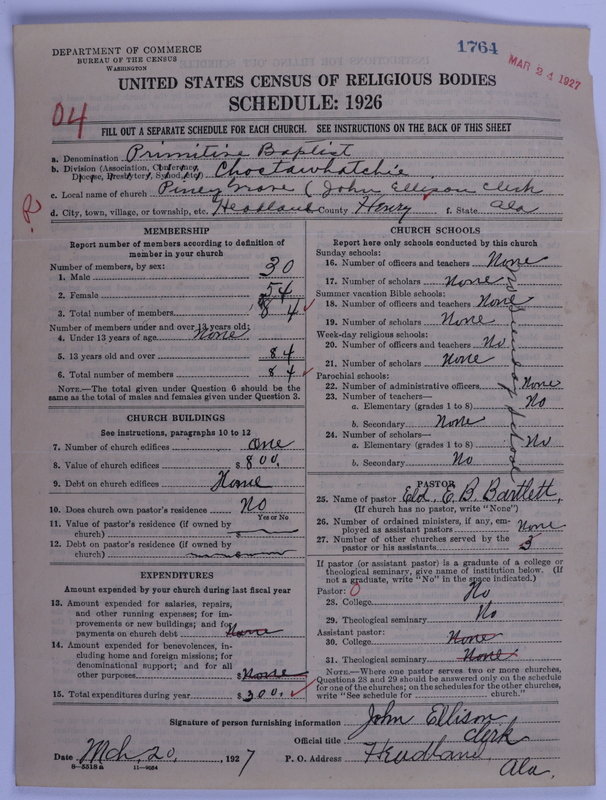 DEPARTMENT OF COMMERCE
BUREAU OF THE CENSUS
WASHINGTON
1764
MAR 24 1927
UNITED STATES CENSUS OF RELIGIOUS BODIES
SCHEDULE: 1926
04
FILL OUT A SEPARATE SCHEDULE FOR EACH CHURCH. SEE INSTRUCTIONS ON THE BACK OF THIS SHEET
a. Denomination Primitive Baptist
b. Division (Association, Conference, Diocese, Presbytery, Synod, etc.) Choctawhatchie
c. Local name of church Piney Grove ( John Ellison Clerk
d. City, town, village, or township, etc. Headland County Henry f. State Ala
MEMBERSHIP
Report number of members according to definition of
member in your church
Number of members, by sex:
1. Male 30
2. Female 54
3. Total number of members 84
Number of members under and over 13 years old:
4. Under 13 years of age None
5. 13 years old and over 84
6. Total number of members 84
NOTE.—The total given under Question 6 should be the
same as the total of males and females given under Question 3.
CHURCH BUILDINGS
See instructions, paragraphs 10 to 12
7. Number of church edifices one
8. Value of church edifices $800.
9. Debt on church edifices None
10. Does church own pastor's residence No
Yes or No
11. Value of pastor's residence (if owned by
church) $
12. Debt on pastor's residence (if owned by
church)
EXPENDITURES
Amount expended by your church during last fiscal year
13. Amount expended for salaries, repairs,
and other running expenses; for im-
provements or new buildings; and for
payments on church debt None
14. Amount expended for benevolences, in-
cluding home and foreign missions; for
denominational support; and for all
other purposes $None
15. Total expenditures during year $300.
CHURCH SCHOOLS
Report here only schools conducted by this church
Sunday schools:
16. Number of officers and teachers None
17. Number of scholars None
Summer vacation Bible schools:
18. Number of officers and teachers None
19. Number of scholars None
Week-day religious schools:
20. Number of officers and teachers No
21. Number of scholars None
Parochial schools:
22. Number of administrative officers None
23. Number of teachers—
a. Elementary (grades 1 to 8) No
b. Secondary None
24. Number of scholars—
a. Elementary (grades 1 to 8) No
b. Secondary No
No Sunday School
PASTOR
25. Name of pastor Eld. E. B. Bartlett,
(If church has no pastor, write "None")
26. Number of ordained ministers, if any, em-
ployed as assistant pastors None
27. Number of other churches served by the
pastor or his assistants 3
If pastor (or assistant pastor) is a graduate of a college or
theological seminary, give name of institution below. (If
not a graduate, write "No" in the space indicated.)
Pastor: 0
28. College No
29. Theological seminary No
Assistant pastor:
30. College None
31. Theological seminary None
NOTE.—Where one pastor serves two or more churches,
Questions 28 and 29 should be answered only on the schedule
for one of the churches; on the schedules for the other churches,
write "See schedule for church."
Signature of person furnishing information John Ellison
Official title Clerk
Date Mch, 20, 1927
P. O. Address Headland
Ala.
8—5318a 11—9084